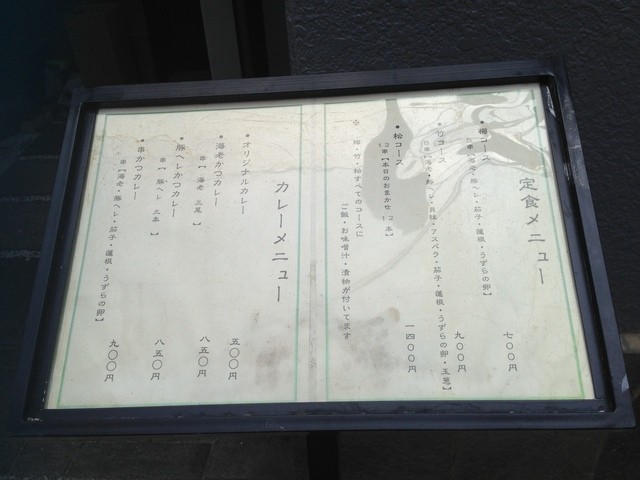 定食メニュー
●梅コース
5串【海老・豚ヘレ・茄子・蓮根・うずらの卵】
七〇〇円
●竹コース
8串【海老・豚ヘレ・貝柱・アスパラ・茄子・蓮根・うずらの卵・玉葱】
九〇〇円
●松コース
【本日のおまかせ
一四〇〇円
※ 梅・竹・松すべてのコースに
ご飯・お味噌汁・漬物が付いてます
カレーメニュー
●オリジナルカレー
五〇〇円
●海老かつカレー
串【 海老 三尾 】
八五〇円
●豚ヘレかつカレー
串【 豚ヘレ 三本 】
八五〇円
●串かつカレー
串【海老・豚ヘレ・茄子・蓮根・うずらの卵】
九〇〇円